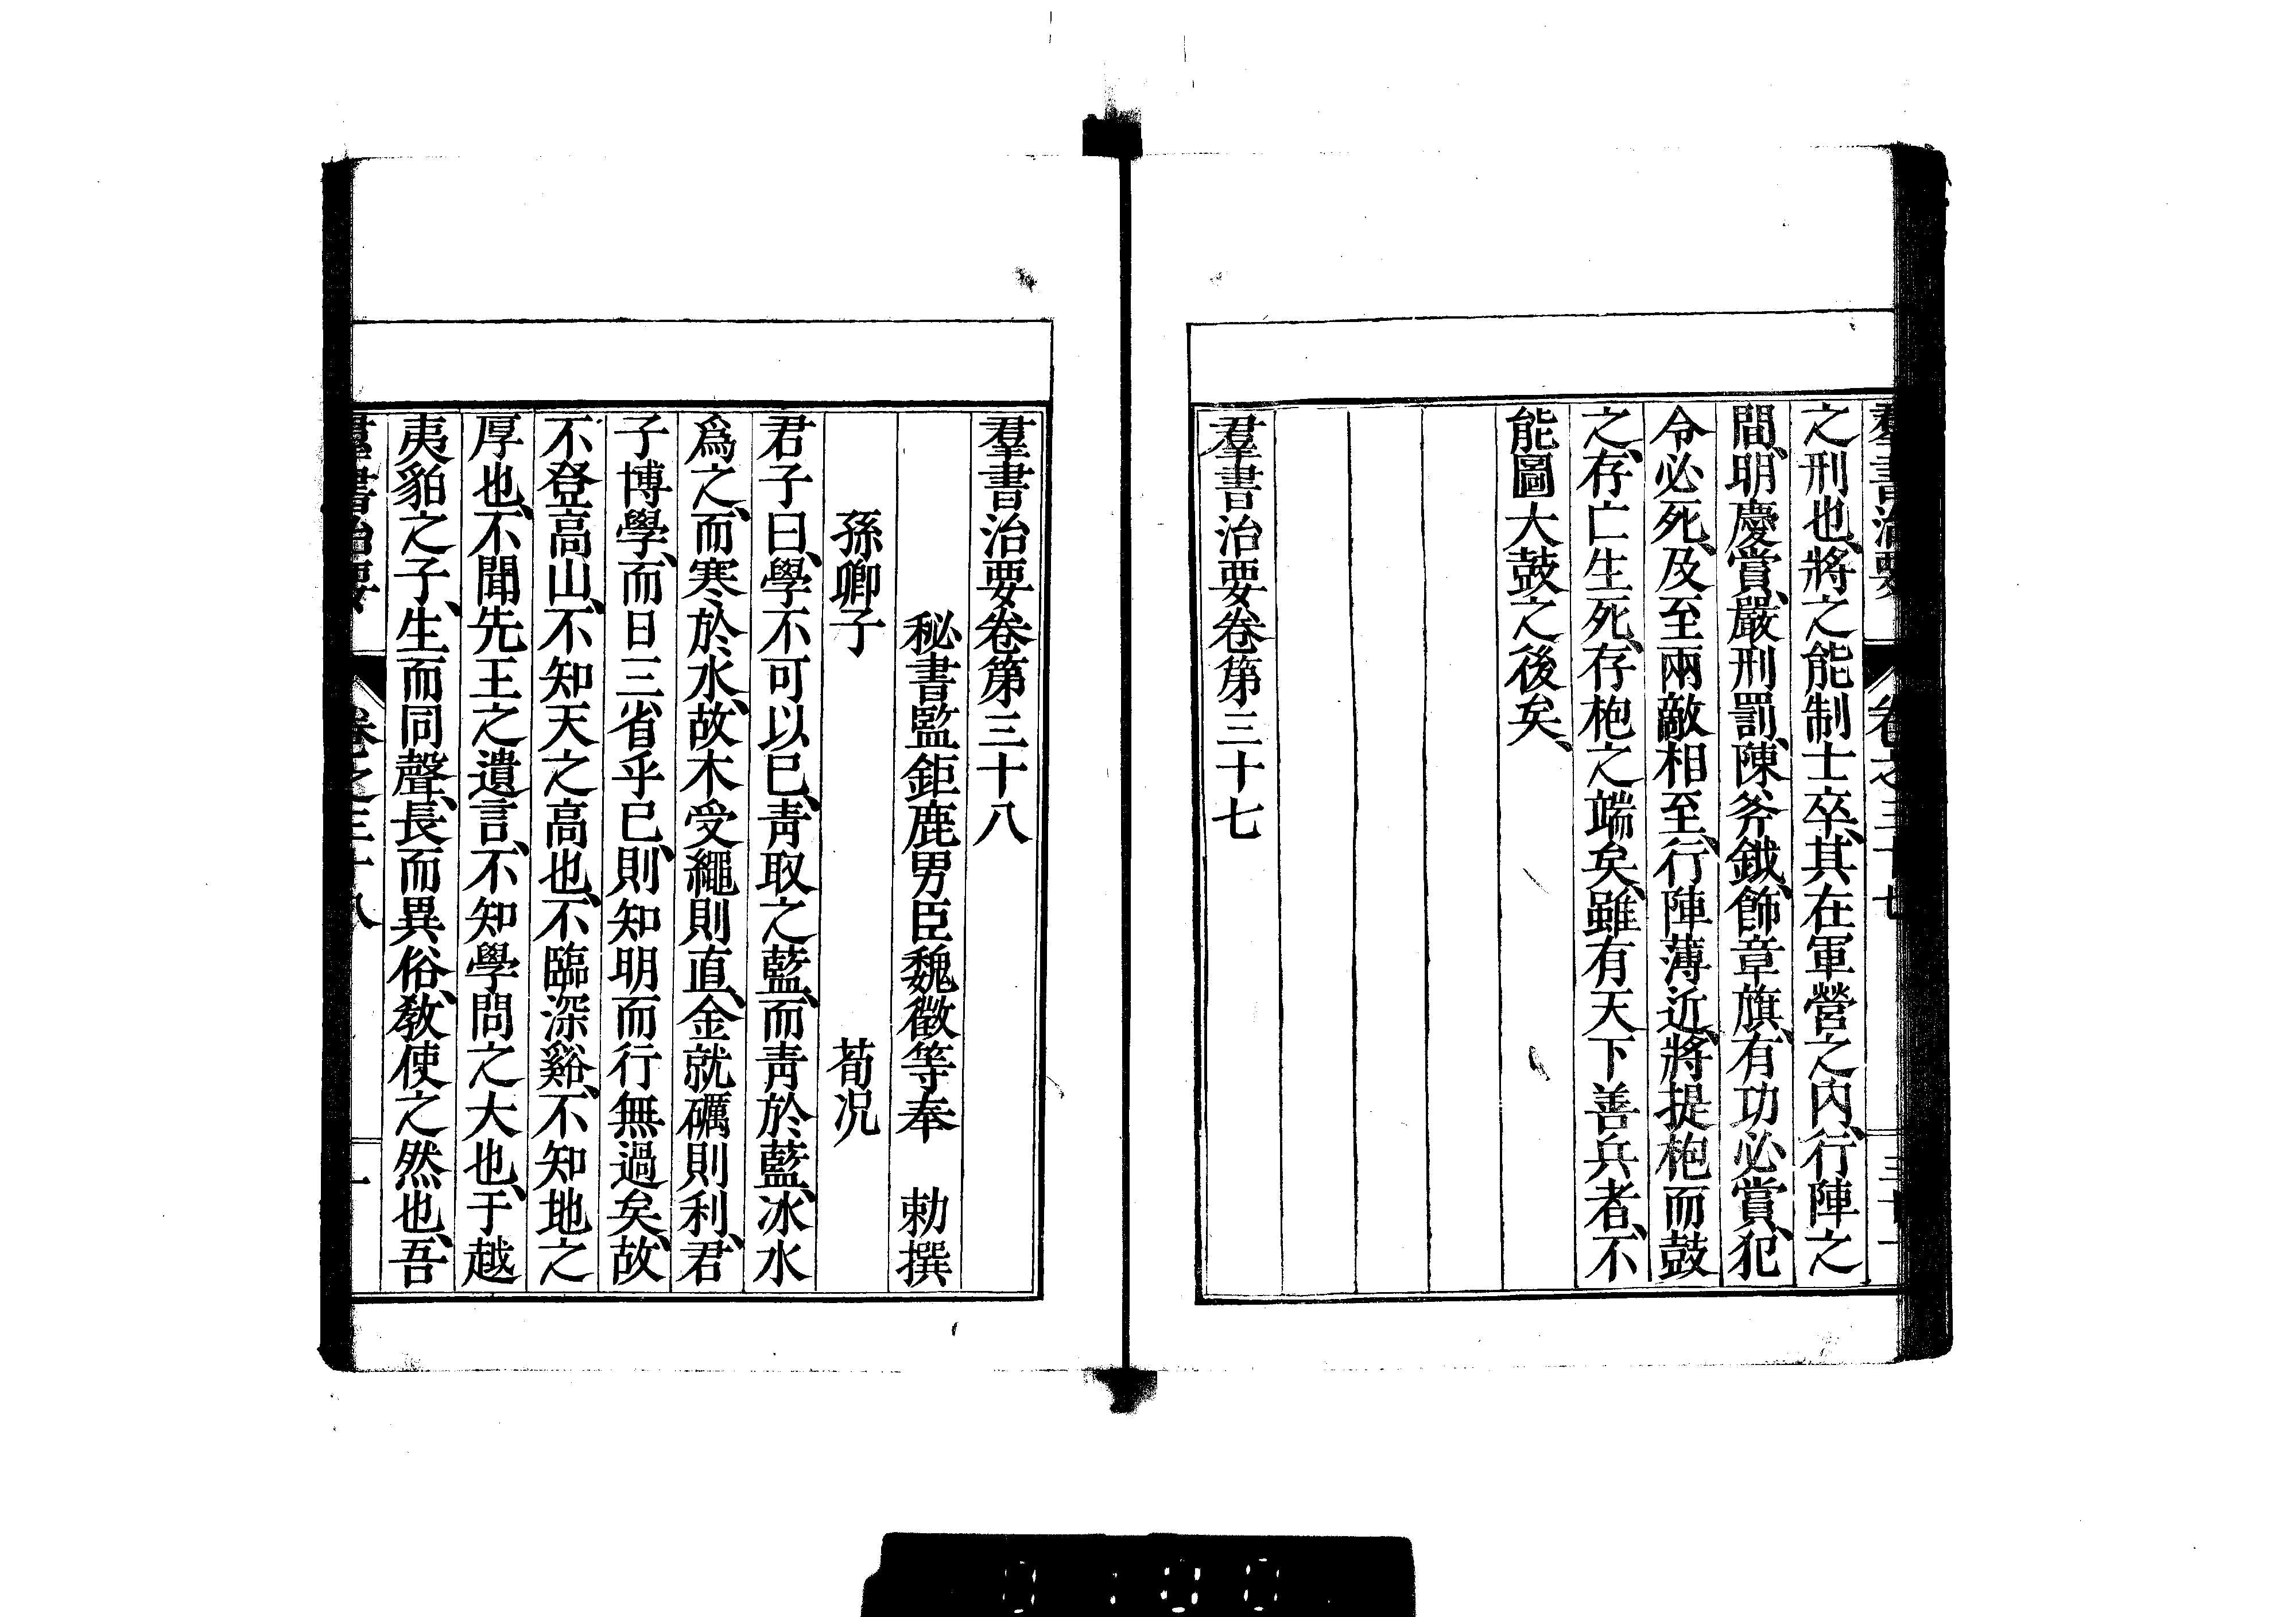 之刑也、將之能制士卒、其在軍營之內、行陣之
間、明慶賞、嚴刑罰、陳斧鉞、飾章旗、有功必賞、犯
令必死、及至兩敵相至、行陣薄近、將提枹而鼓
之、存亡生死、存枹之端矣、雖有天下善兵者、不
能圖大鼓之後矣、
羣書治要卷第三十七
羣書治要卷第三十八
秘書監鉅鹿男臣魏徵等奉 勅撰
孫卿子 荀况
君子曰、學不可以已、靑取之藍、而靑於藍、冰水
爲之、而寒於水、故木受繩則直、金就礪則利、君
子博學、而日三省乎已、則知明而行無過矣、故
不登高山、不知天之高也、不臨深谿、不知地之
厚也、不聞先王之遺言、不知學問之大也、于越
夷貊之子、生而同聲、長而異俗、敎使之然也、吾
羣書治要 卷之三十八 一